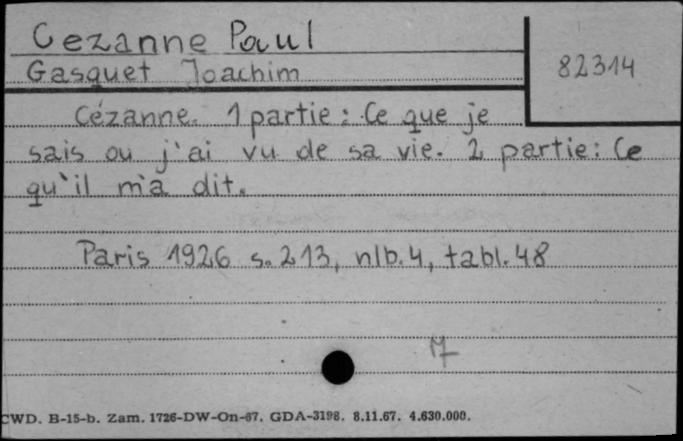 Cezanne Paul
Gasquet Joachim
82314
Cézanne. 1 partie: Ce que je
sais ou j'ai vu de sa vie. 2 partie: Ce
qu'il m'a dit.
Paris 1926 s. 213, nlb. 4, tabl. 48
CWD. B-15-b. Zam. 1726-DW-On-67. GDA-3198. 8.11.67. 4.630.000.